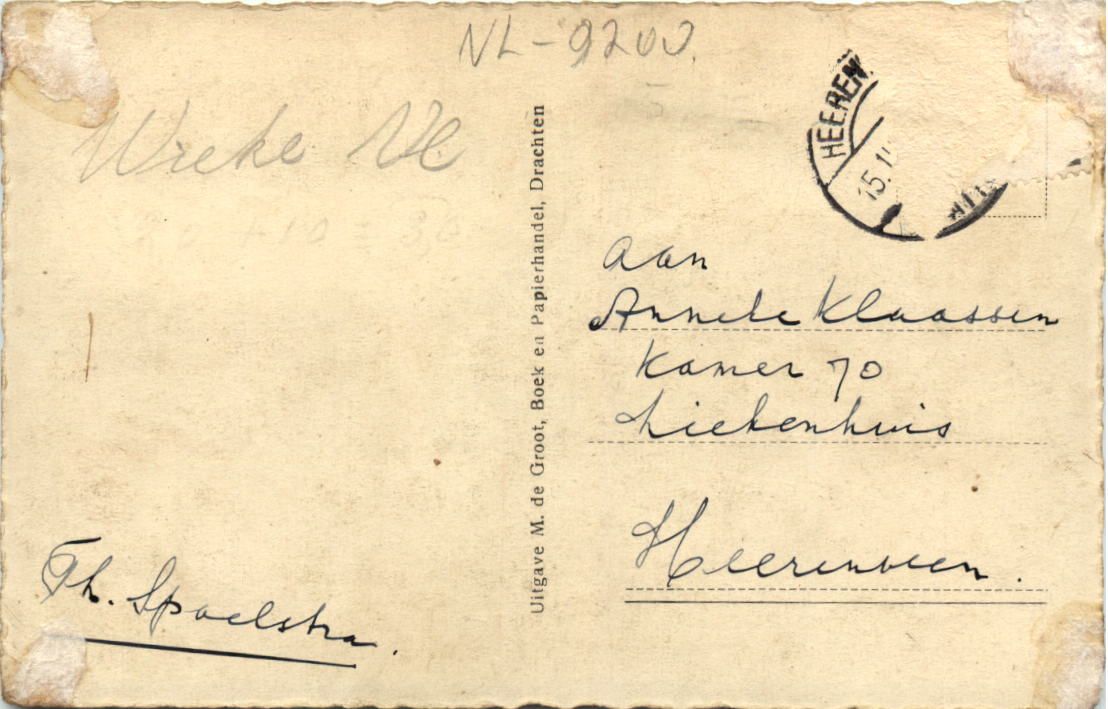 NL-9200
Wieke
HEEREN
15.1
Uitgave M. de Groot, Boek en Papierhandel, Drachten
aan
Anneke Klaassen
Kamer 70
Ziekenhuis
Heerenveen.
Th. Spoelstra.